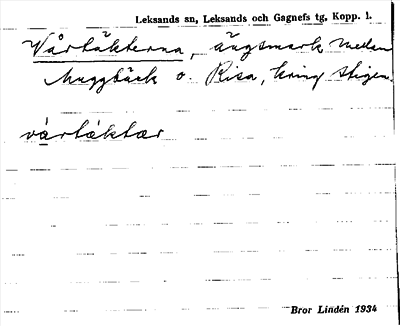 Leksands sn, Leksands och Gagnefs tg, Kopp. l.
Vårtäkterna, ängsmark mellan
Muggbäck o. Risa, kring stigen.
vårtäktær
Bror Lindén 1934